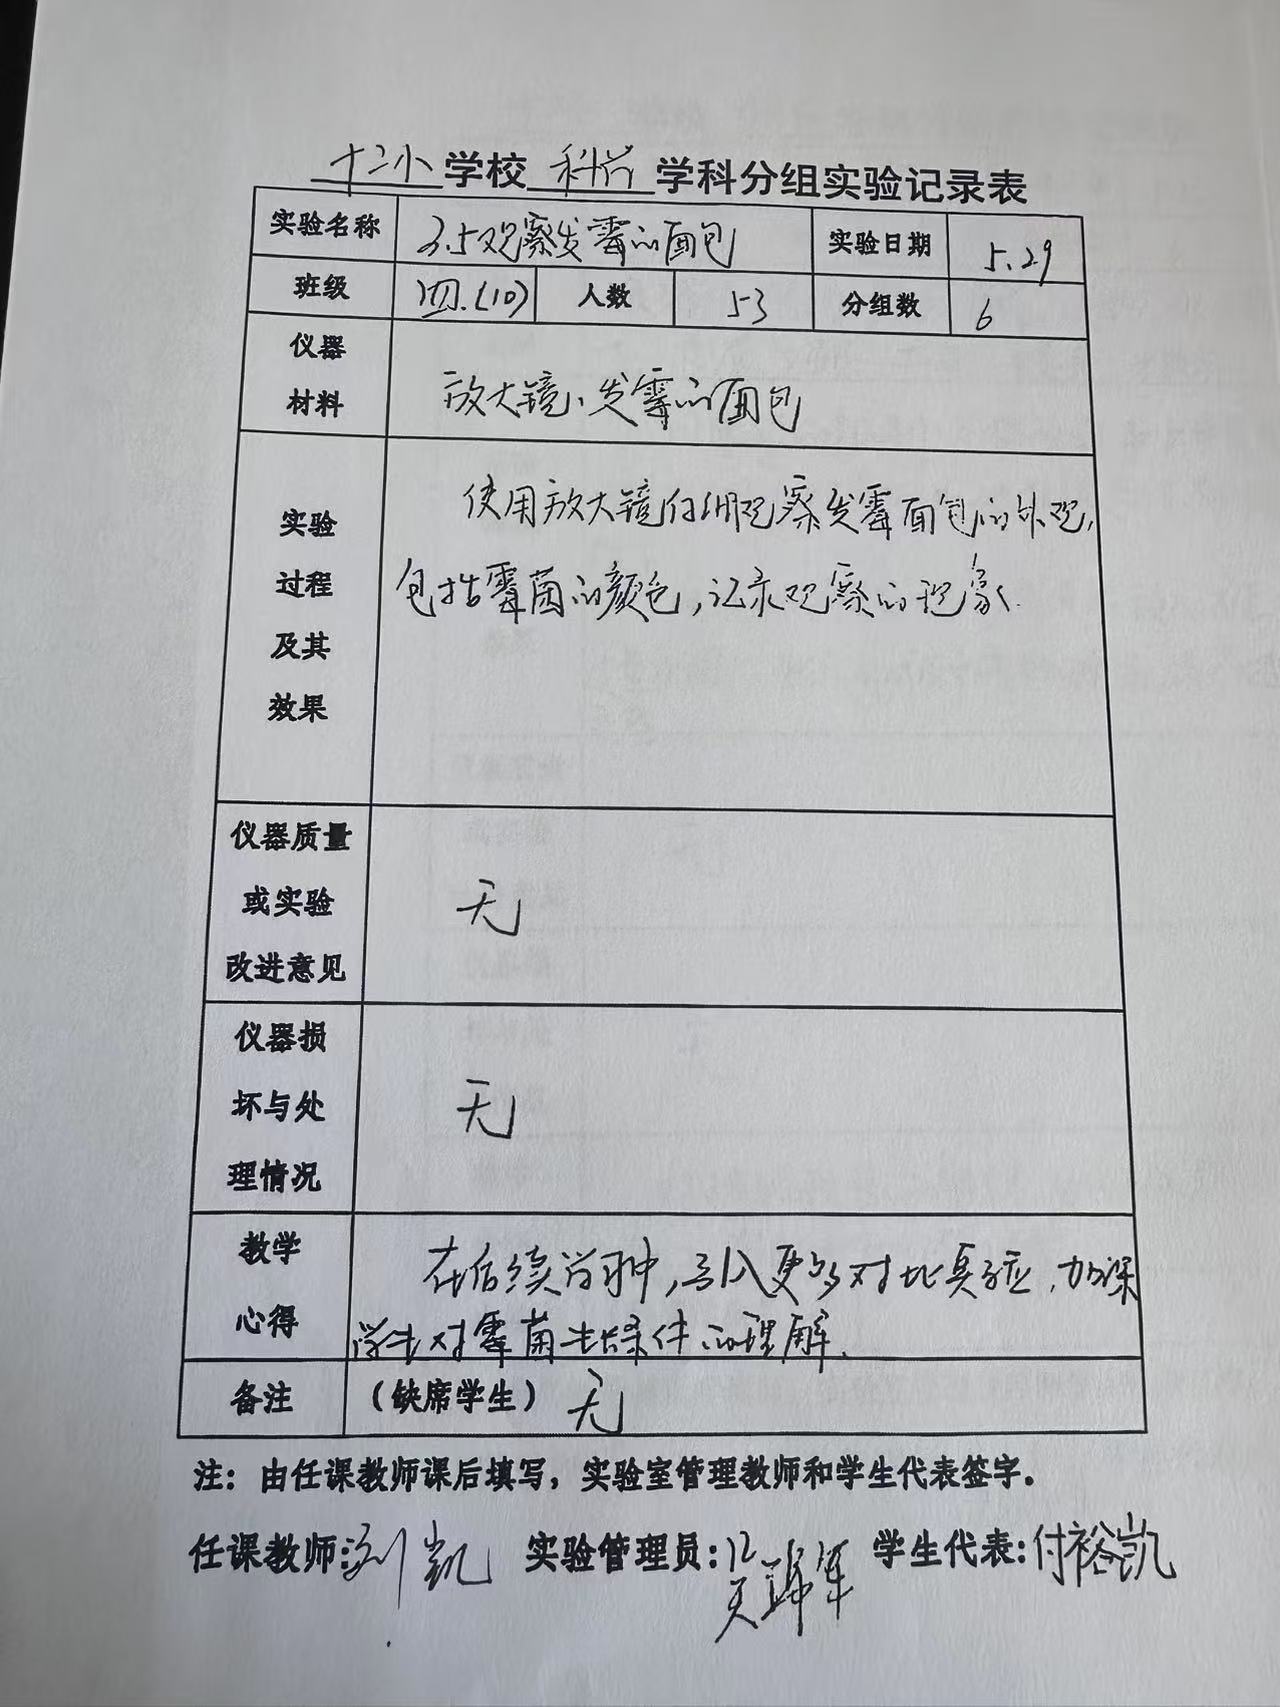 十二小学校 科学 学科分组实验记录表
实验名称 3.5观察发霉的面包 实验日期 5.29
班级 四.(10) 人数 53 分组数 6
仪器
材料
放大镜、发霉的面包
实验
过程
及其
效果
使用放大镜仔细观察发霉面包的外观,
包括霉菌的颜色,记录观察的现象.
仪器质量
或实验
改进意见
无
仪器损
坏与处
理情况
无
教学
心得
在后续学习中,引入更多对比实验,加深
学生对霉菌生长条件的理解.
备注 (缺席学生) 无
注：由任课教师课后填写，实验室管理教师和学生代表签字。
任课教师:刘凯 实验管理员: 学生代表:付裕凯